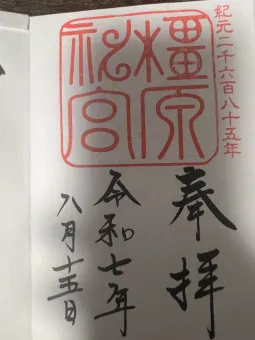 紀元二千六百八十五年
橿原
神宮
奉拝
令和七年
八月十五日